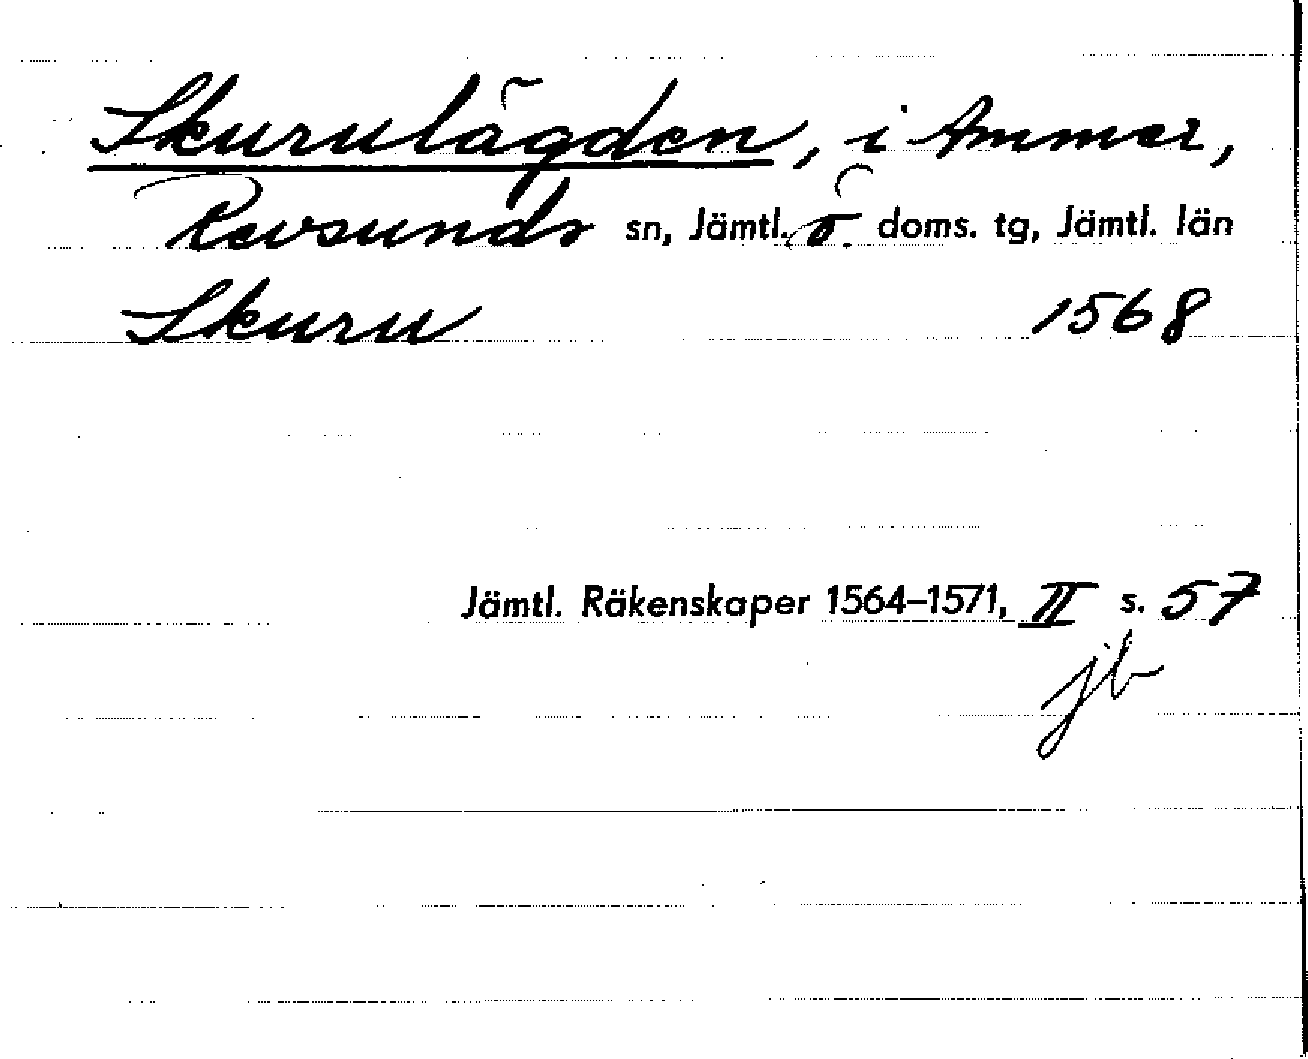 Skurulägden, i Ammer,
Revsunds sn, Jämtl. ö. doms. tg, Jämtl. län
Skuru 1568
Jämtl. Räkenskaper 1564–1571, II s. 57
jb